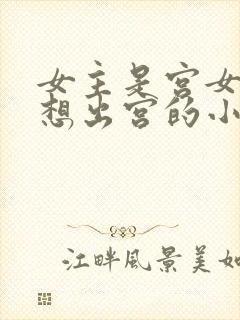 女主是宫女
想出宫的小
江畔风景美如